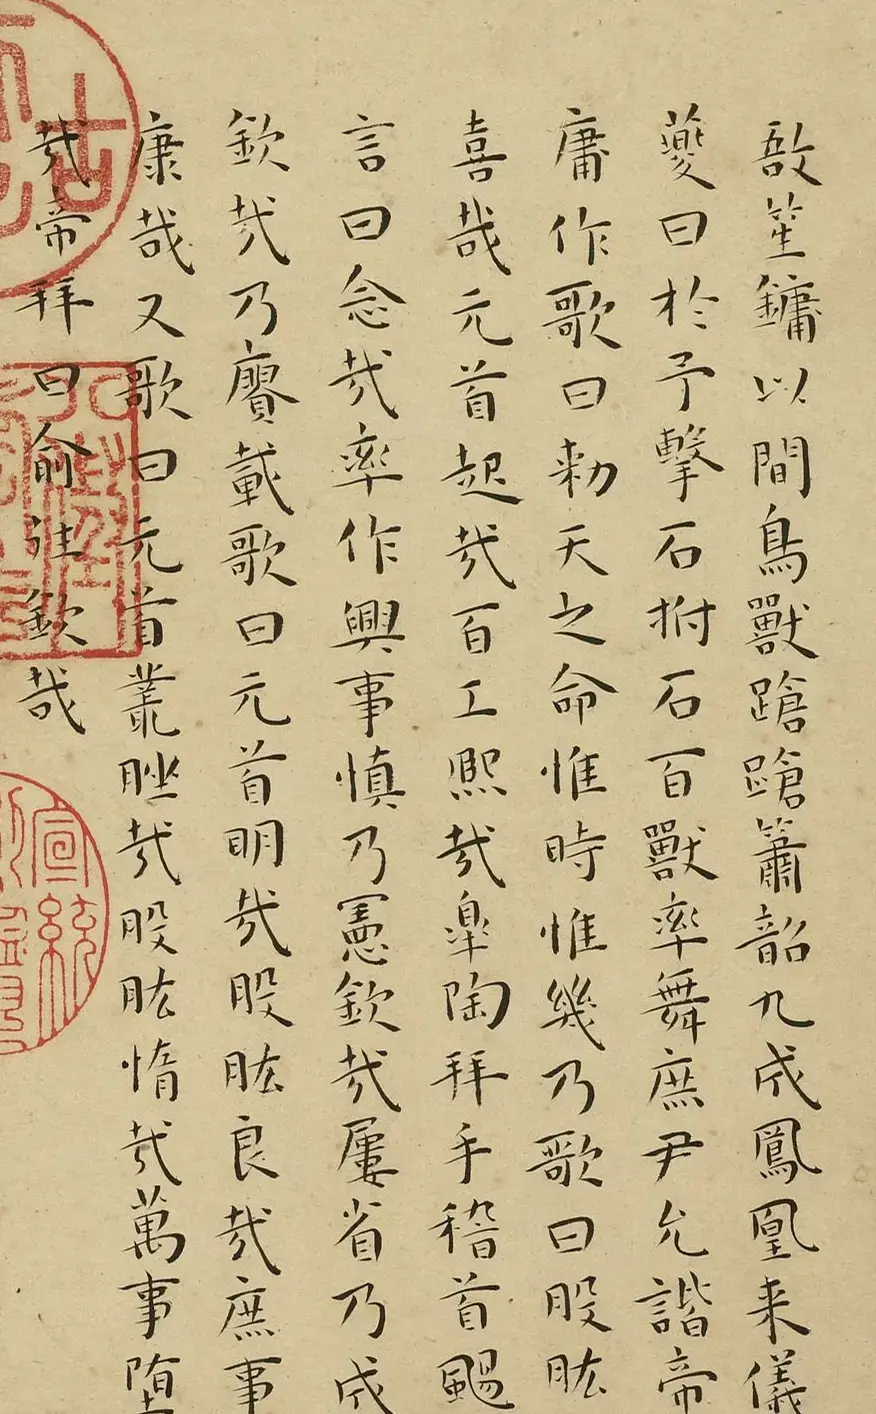 敔笙鏞以間鳥獸蹌蹌簫韶九成鳳凰来儀
夔曰於予擊石拊石百獸率舞庶尹允諧帝
庸作歌曰勑天之命惟時惟幾乃歌曰股肱
喜哉元首起哉百工熙哉皋陶拜手稽首颺
言曰念哉率作興事慎乃憲欽哉屢省乃成
欽哉乃賡載歌曰元首明哉股肱良哉庶事
康哉又歌曰元首叢脞哉股肱惰哉萬事墮
哉帝拜曰俞往欽哉
宣統